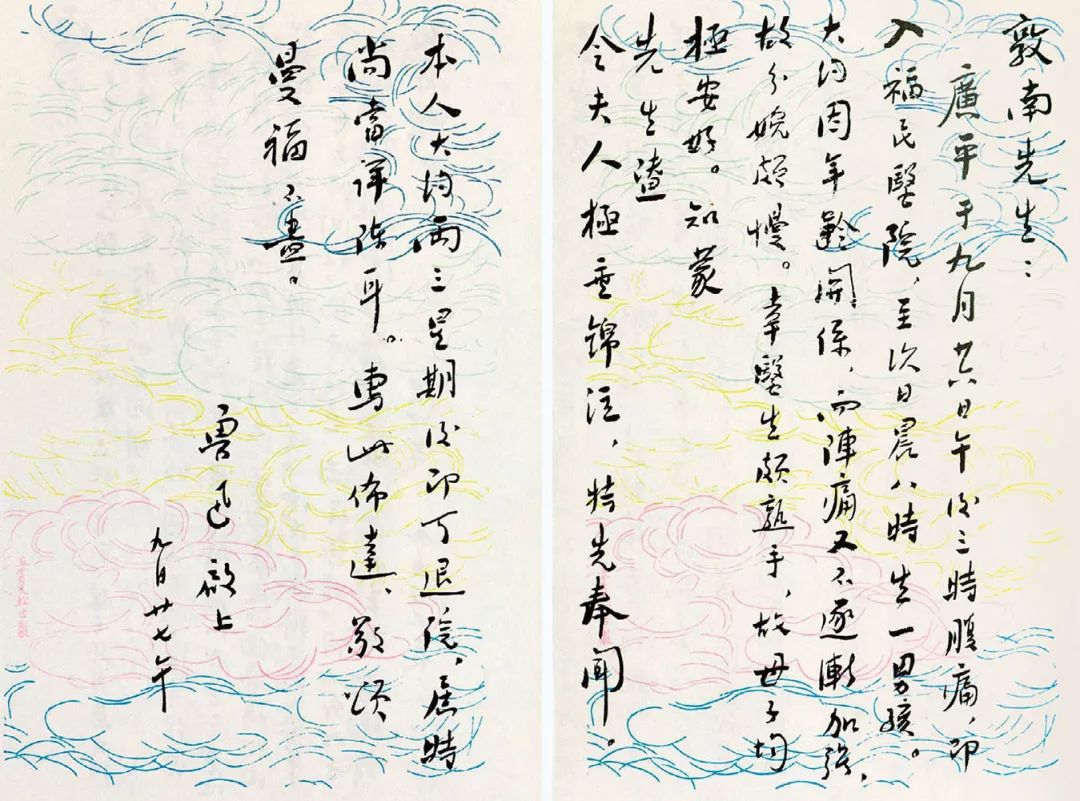 敦南先生：
廣平于九月廿六日午後三時腹痛，即
入福民醫院，至次日晨八時生一男孩。
大約因年齡關係，而陣痛又不逐漸加強，
故分娩頗慢。幸醫生頗熟手，故母子均
極安好。知蒙
先生暨
令夫人極垂錦注，特先奉聞。
本人大約兩三星期後即可退院，屆時
尚當詳陳耳。專此佈達，敬頌
曼福不盡。
魯迅啟上
九月廿七午